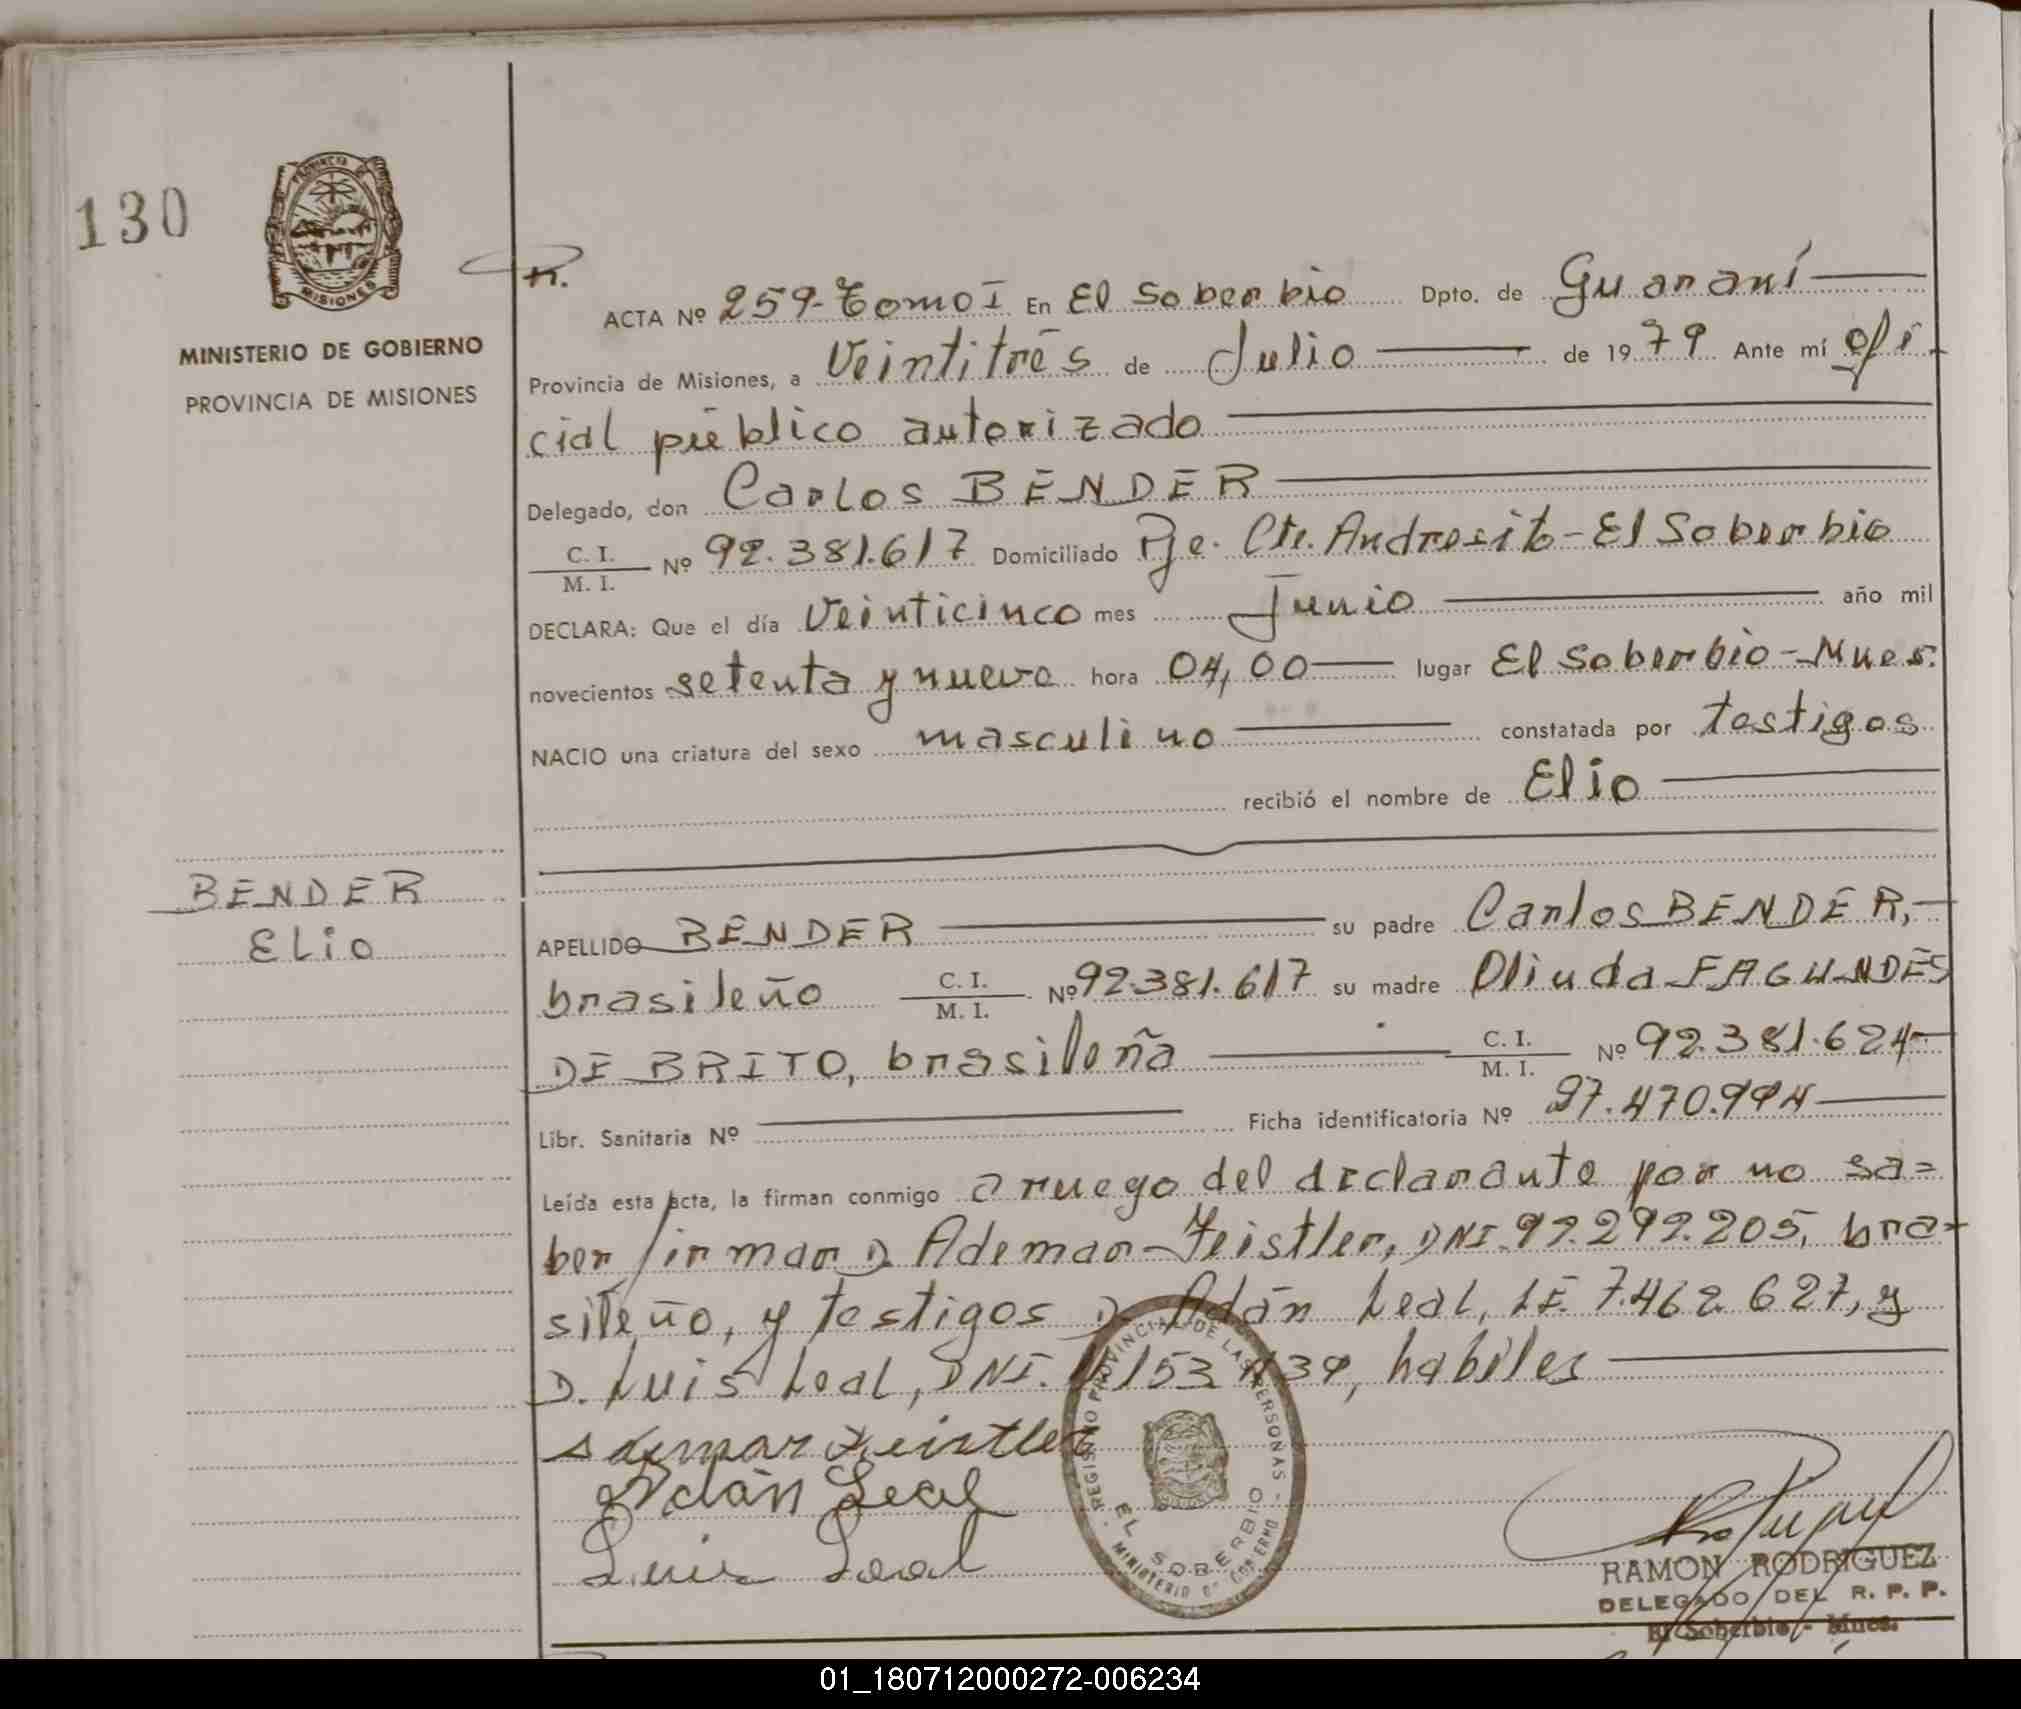 130
PROVINCIA DE
MISIONES
MINISTERIO DE GOBIERNO
PROVINCIA DE MISIONES
ACTA Nº 259-Tomo I En El Soberbio Dpto. de Guaraní
Provincia de Misiones, a Veintitrés de Julio de 1979 Ante mí ofi
cial público autorizado
Delegado, don Carlos BENDER
C. I.
M. I. Nº 92.381.617 Domiciliado Pje. Cte. Andresito-El Soberbio
DECLARA: Que el día Veinticinco mes Junio año mil
novecientos setenta y nueve hora 04,00 lugar El Soberbio-Mnes.
NACIO una criatura del sexo masculino constatada por testigos
recibió el nombre de Elio
BENDER
ELio
APELLIDO BENDER su padre Carlos BENDER,
brasileño C. I.
M. I. Nº 92.381.617 su madre Olinda FAGUNDES
DE BRITO, brasileña C. I.
M. I. Nº 92.381.624
Libr. Sanitaria Nº Ficha identificatoria Nº 27.470.994
Leída esta acta, la firman conmigo a ruego del declarante por no sa=
ber firmar D. Ademar Feistler, DNI. 92.292.205, bra=
sileño, y testigos D. Adán Leal, LE. 7.462.627, y
D. Luis Leal, DNI. habiles
Ademar Feistler
Adán Leal
Luis Leal
REGISTRO PROVINCIAL DE LAS PERSONAS
EL SOBERBIO
MINISTERIO DE GOBIERNO
RAMON RODRIGUEZ
DELEGADO DEL R. P. P.
El Soberbio - Mnes.
01_180712000272-006234